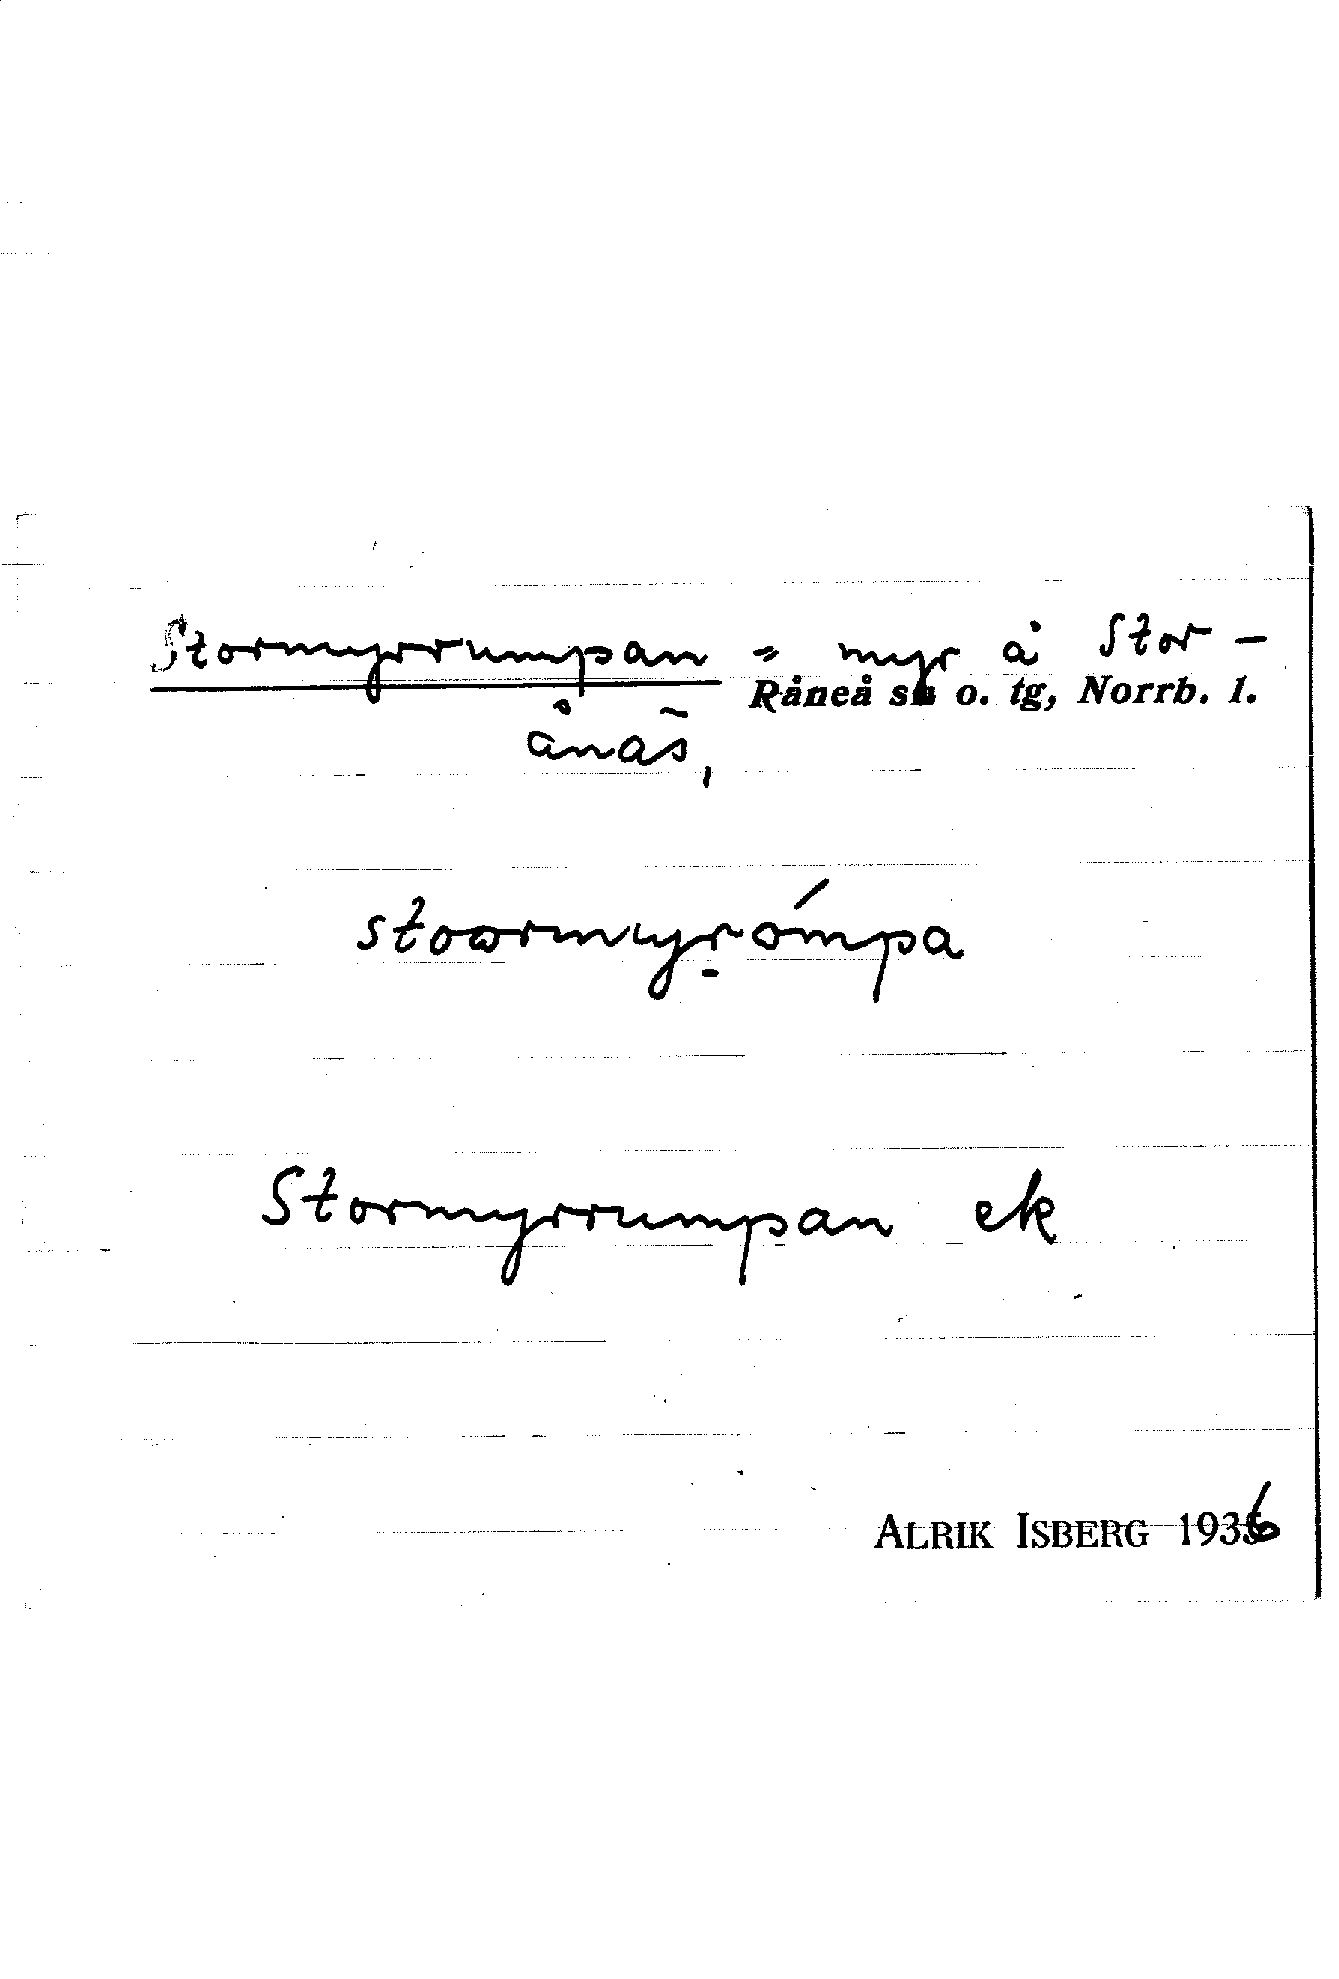 Stormyrrumpan = myr å Stor-
Råneå sn o. tg, Norrb. l.
ånäs,
stoωrmyr̲ómpa
Stormyrrumpan ek
ALRIK ISBERG 1936